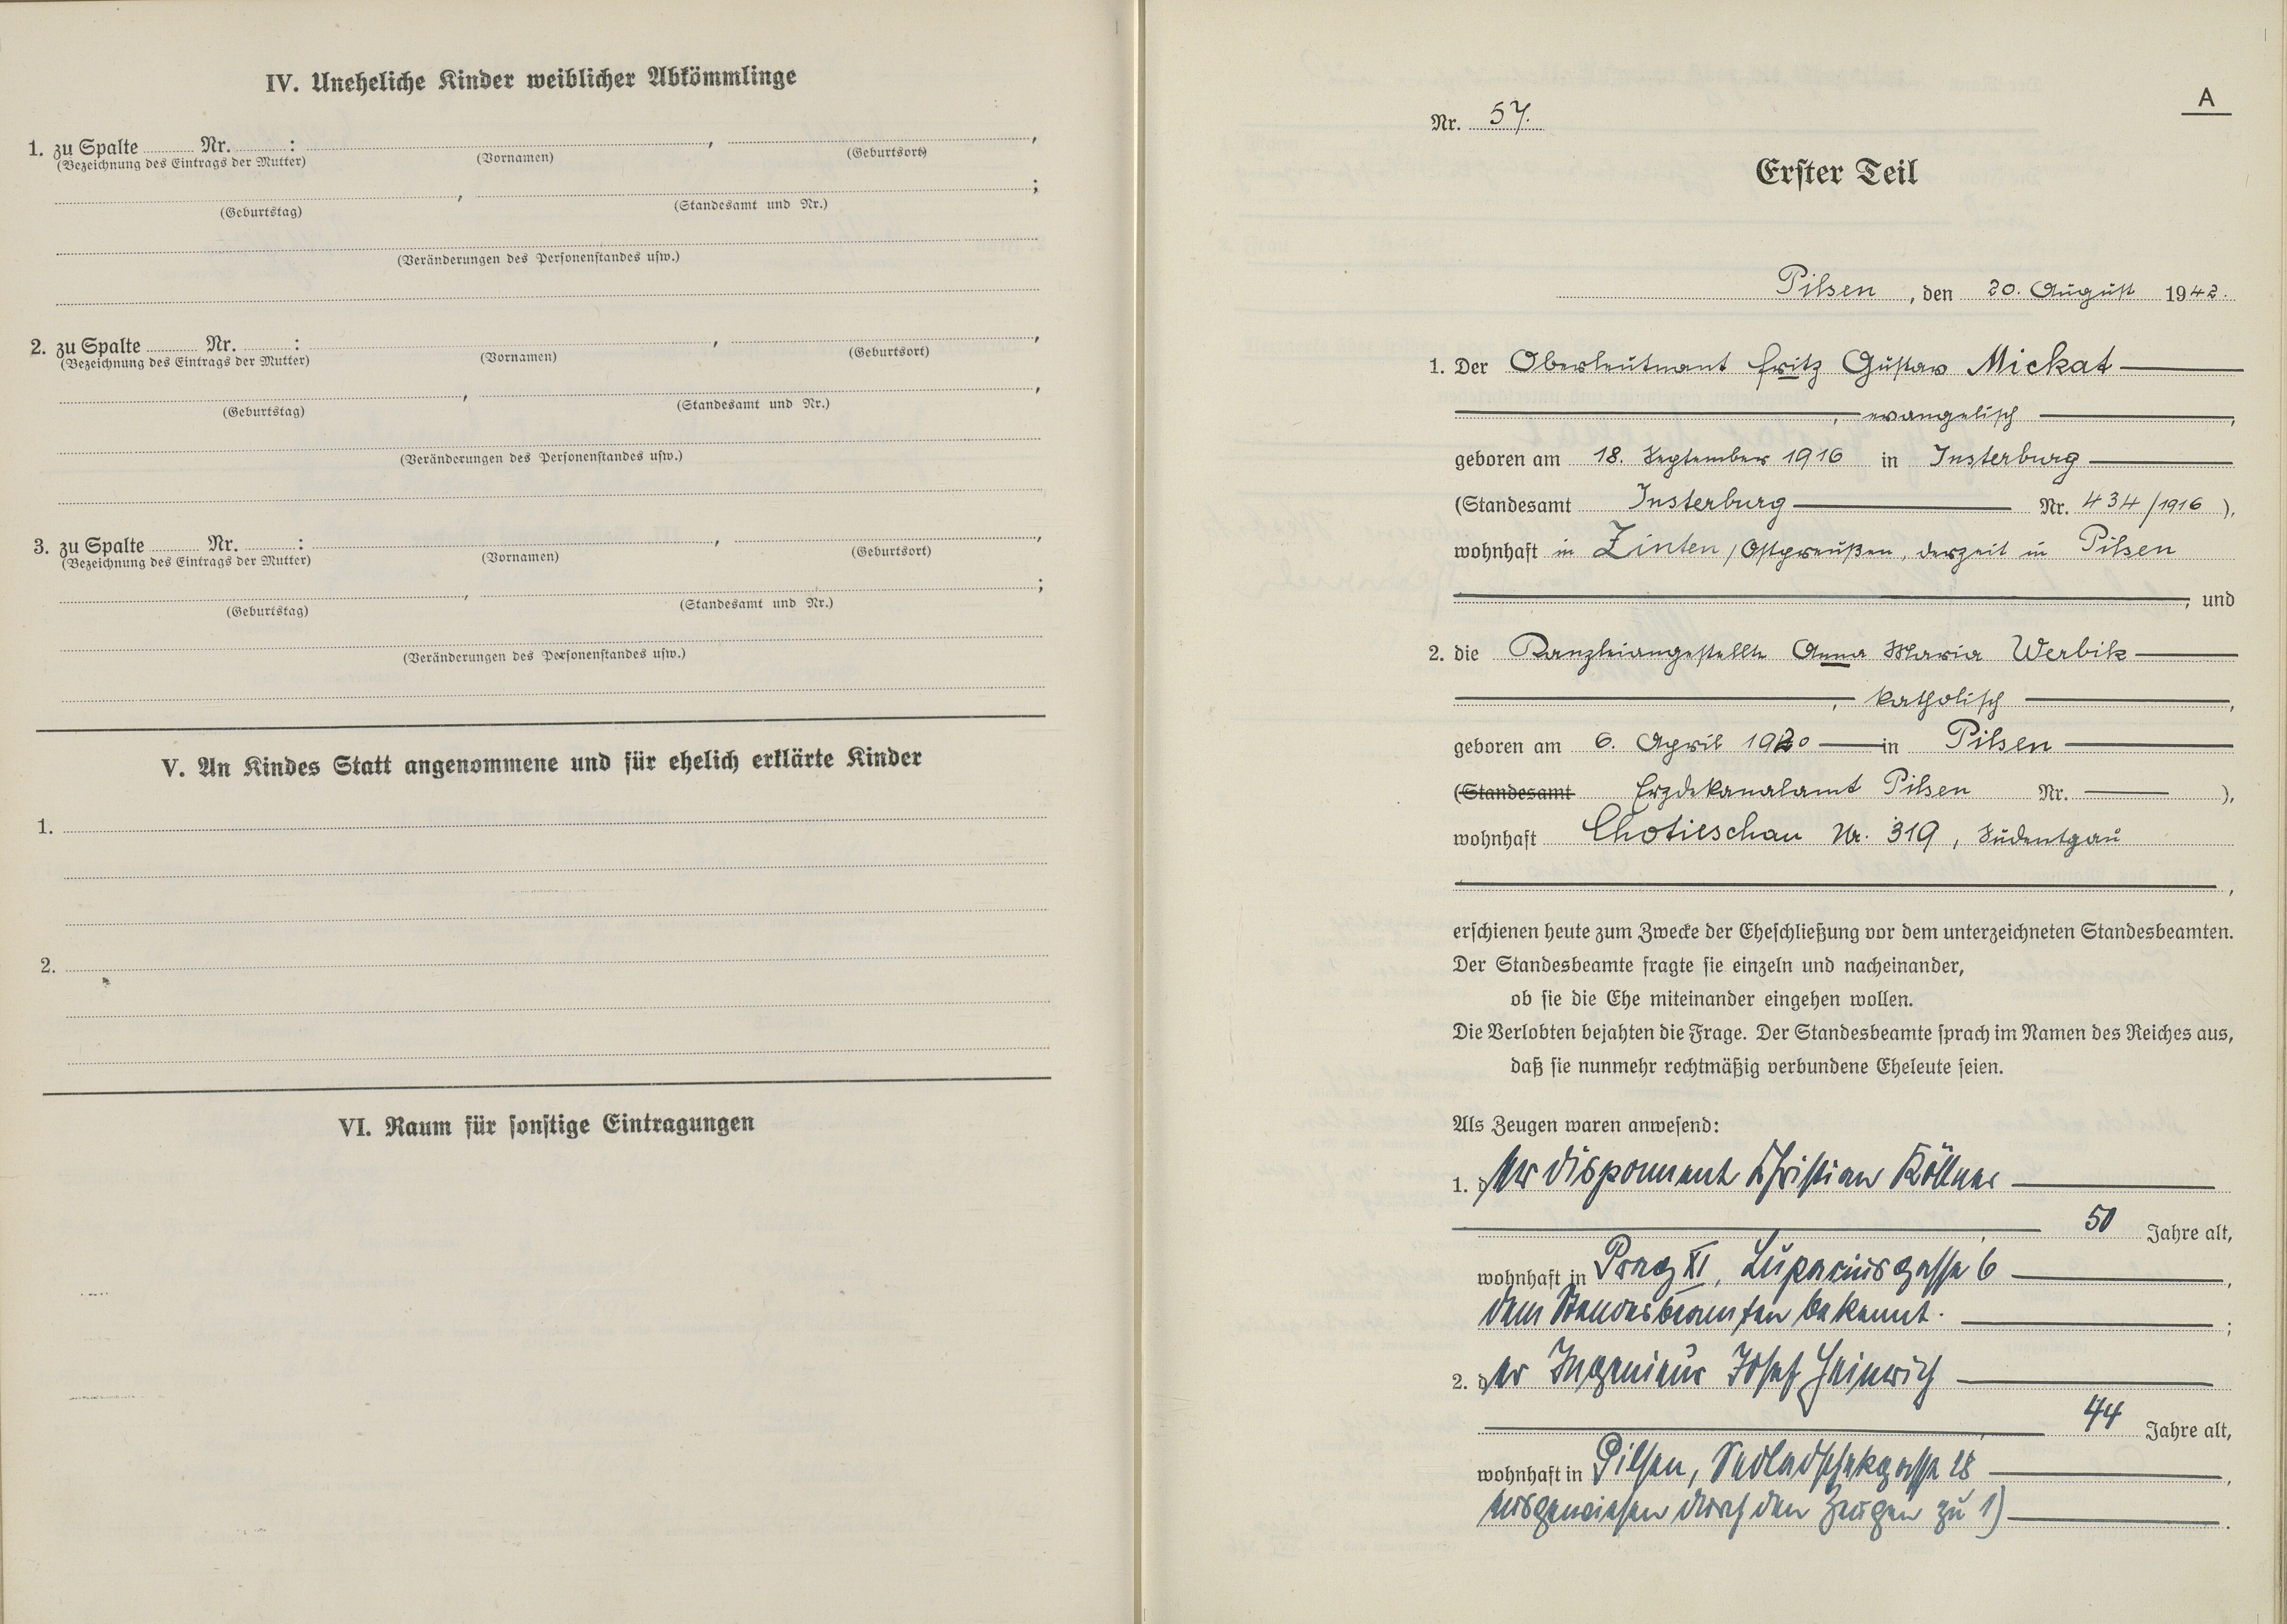 IV. Uneheliche Kinder weiblicher Abkömmlinge
1. zu Spalte ........ Nr. ........ : ........ , ........ ,
(Bezeichnung des Eintrags der Mutter) (Vornamen) (Geburtsort)
........ , ........ ;
(Geburtstag) (Standesamt und Nr.)
(Veränderungen des Personenstandes usw.)
2. zu Spalte ........ Nr. ........ : ........ , ........ ,
(Bezeichnung des Eintrags der Mutter) (Vornamen) (Geburtsort)
........ , ........ ,
(Geburtstag) (Standesamt und Nr.)
(Veränderungen des Personenstandes usw.)
3. zu Spalte ........ Nr. ........ : ........ , ........ ,
(Bezeichnung des Eintrags der Mutter) (Vornamen) (Geburtsort)
........ , ........ ;
(Geburtstag) (Standesamt und Nr.)
(Veränderungen des Personenstandes usw.)
V. An Kindes Statt angenommene und für ehelich erklärte Kinder
1.
2.
VI. Raum für sonstige Eintragungen
A
Nr. 57.
Erster Teil
Pilsen, den 20. August 1942.
1. Der Oberleutnant Fritz Gustav Mickat
, evangelisch ,
geboren am 18. September 1916 in Insterburg
(Standesamt Insterburg Nr. 434/1916 ),
wohnhaft in Zinten/Ostpreußen, derzeit in Pilsen
, und
2. die Kanzleiangestellte Anna Maria Werbik
, katholisch ,
geboren am 6. April 1920 in Pilsen
(Standesamt Erzdekanalamt Pilsen Nr. — ),
wohnhaft Chotieschau Nr. 319, Sudentgau
,
erschienen heute zum Zwecke der Eheschließung vor dem unterzeichneten Standesbeamten.
Der Standesbeamte fragte sie einzeln und nacheinander,
ob sie die Ehe miteinander eingehen wollen.
Die Verlobten bejahten die Frage. Der Standesbeamte sprach im Namen des Reiches aus,
daß sie nunmehr rechtmäßig verbundene Eheleute seien.
Als Zeugen waren anwesend:
1. der Disponent Christian Köllner
50 Jahre alt,
wohnhaft in Prag XI, Lupaciusgasse 6 ,
dem Standesbeamten bekannt. ;
2. der Ingenieur Josef Heinrich
44 Jahre alt,
wohnhaft in Pilsen, Sedladschekgasse 28 ,
ausgewiesen durch den Zeugen zu 1) .